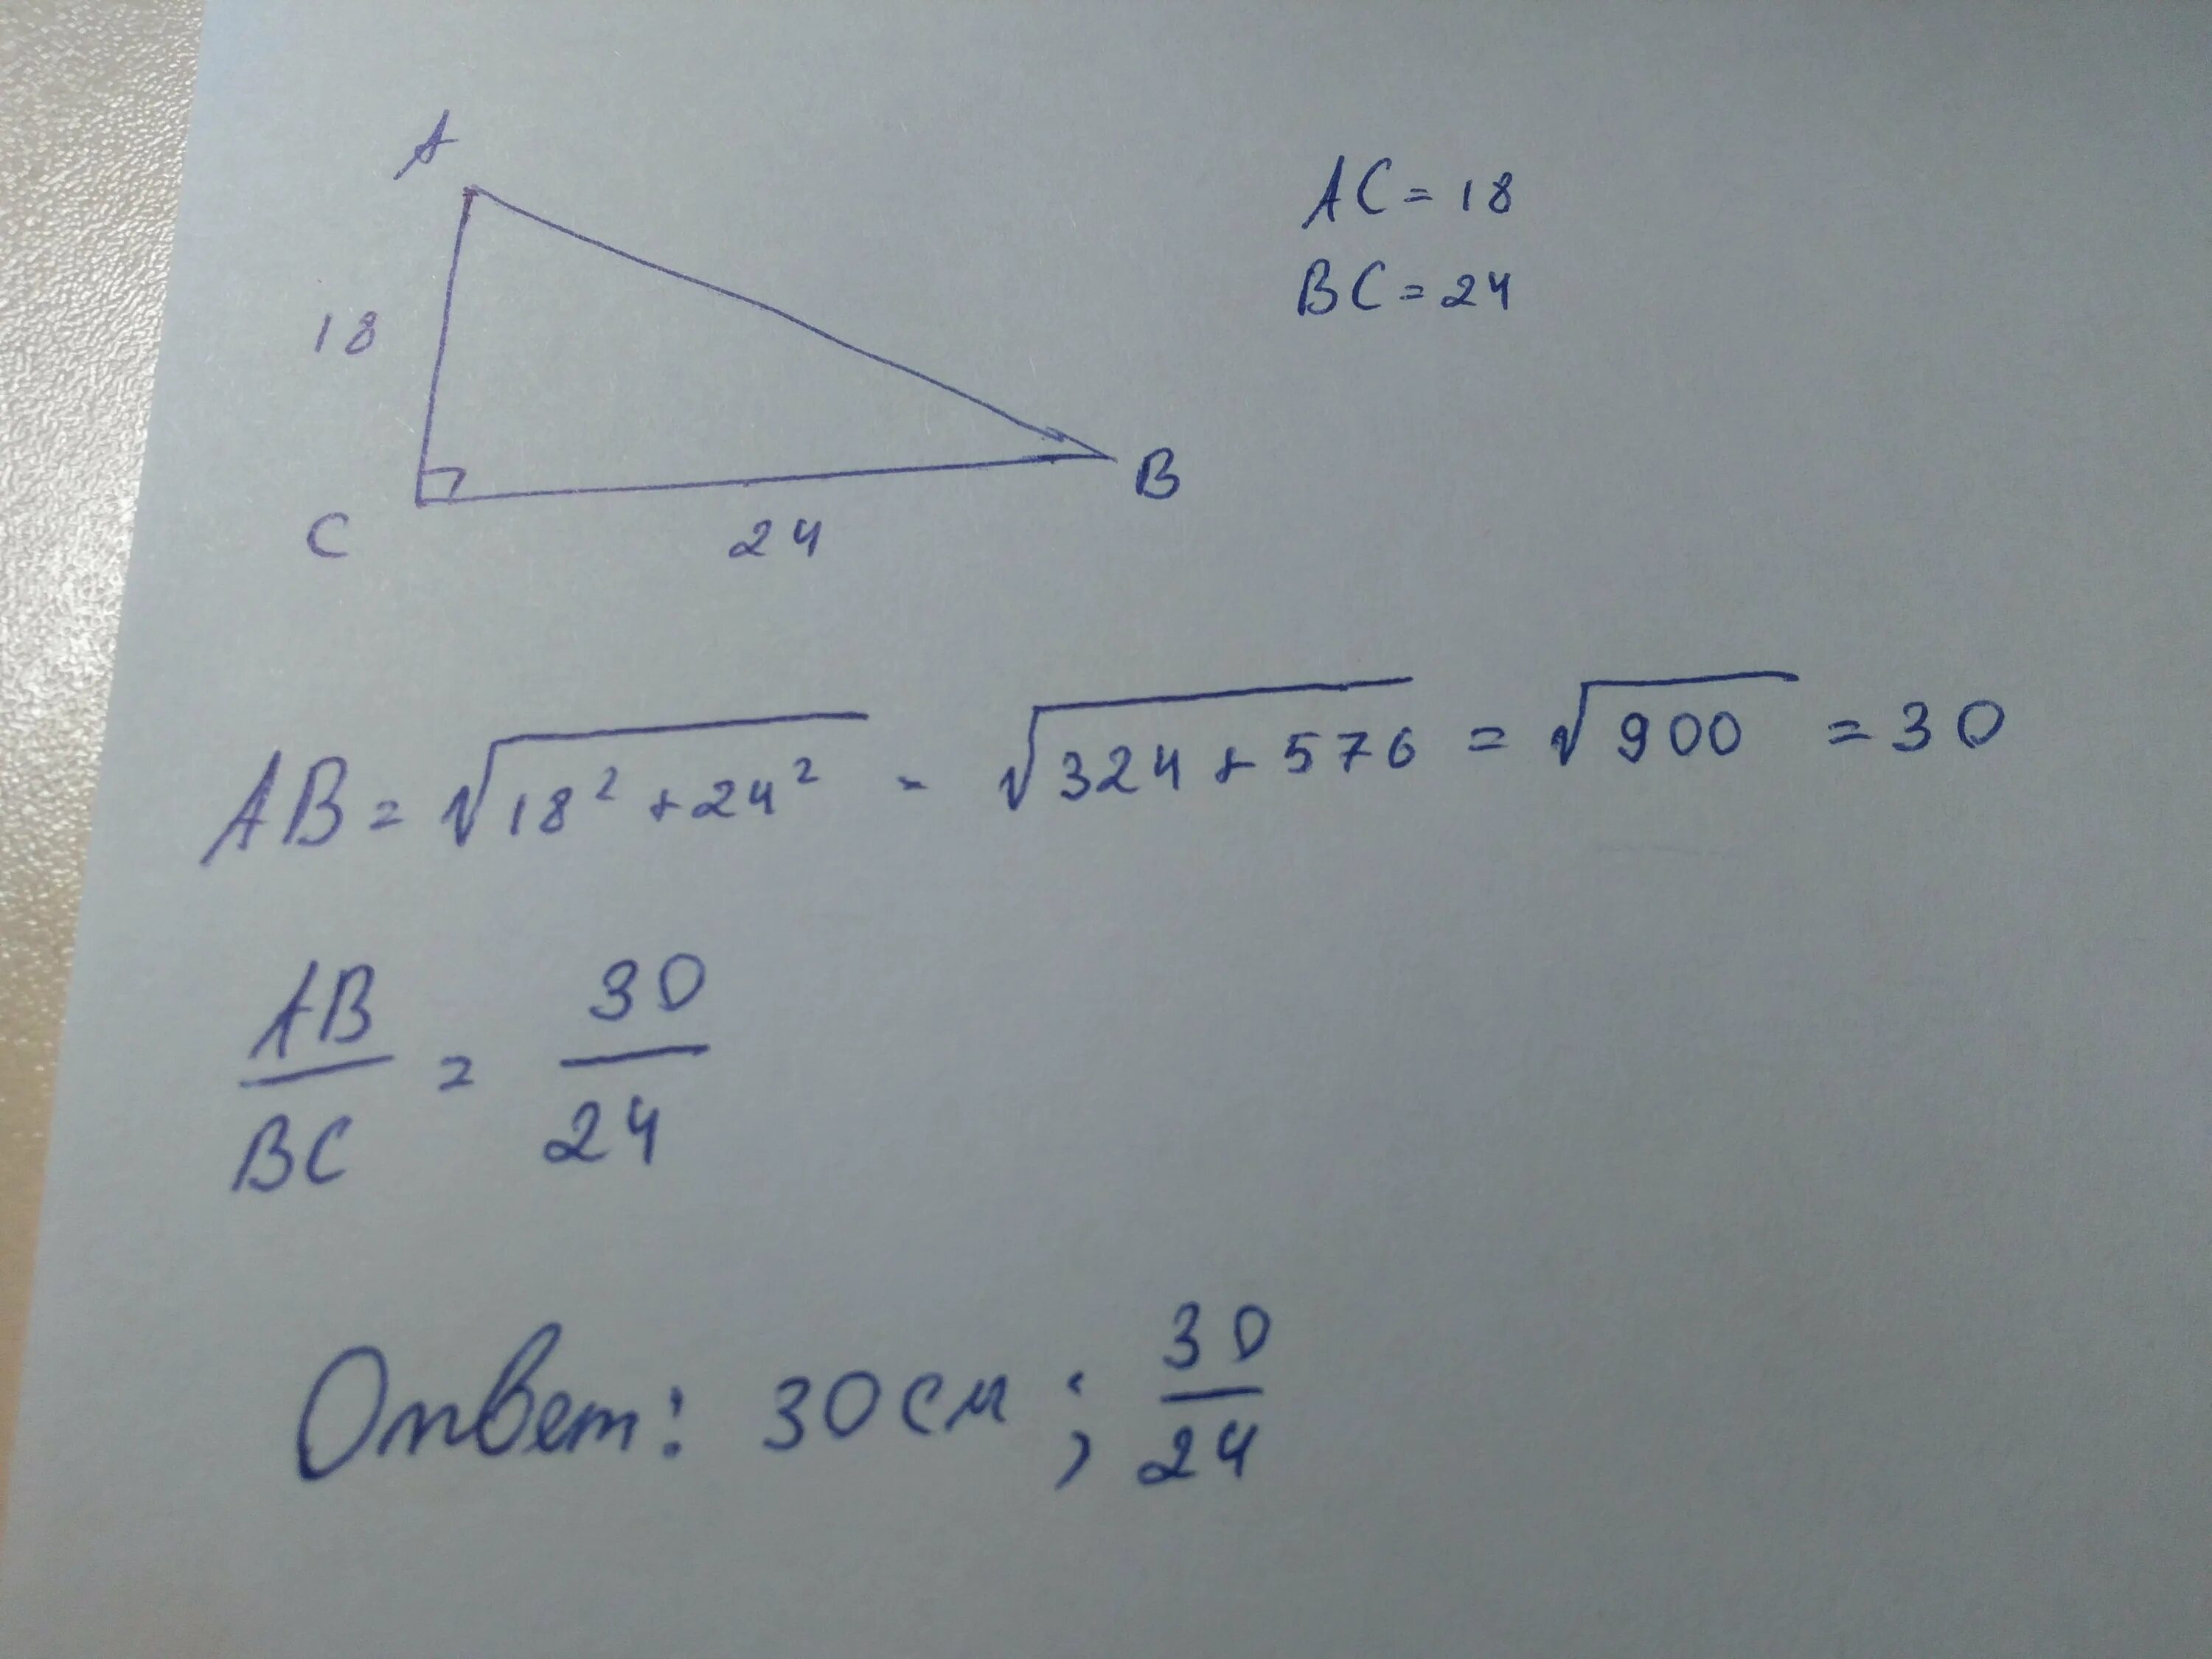 A
AC = 18
18
BC = 24
B
C
24
AB = √18² + 24² = √324 + 576 = √900 = 30
AB/BC = 30/24
Ответ: 30 см ; 30/24